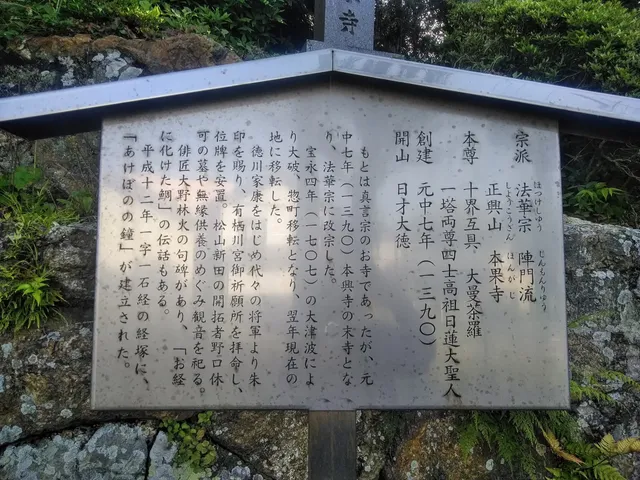 寺
宗派　法華宗　陣門流
ほっけしゅう　じんもんりゅう
正興山　本果寺
しょうこうさん　ほんがじ
本尊　十界互具　大曼荼羅
一塔両尊四士高祖日蓮大聖人
創建　元中七年（一三九〇）
開山　日才大徳
もとは真言宗のお寺であったが、元
中七年（一三九〇）本興寺の末寺とな
り、法華宗に改宗した。
宝永四年（一七〇七）の大津波によ
り大破、惣町移転となり、翌年現在の
地に移転した。
徳川家康をはじめ代々の将軍より朱
印を賜り、有栖川宮御祈願所を拝命し、
位牌を安置。松山新田の開拓者野口休
可の墓や無縁供養のめぐみ観音を祀る。
俳匠大野林火の句碑があり、「お経
に化けた鯛」の伝話もある。
平成十二年一字一石経の経塚に、
「あけぼのの鐘」が建立された。